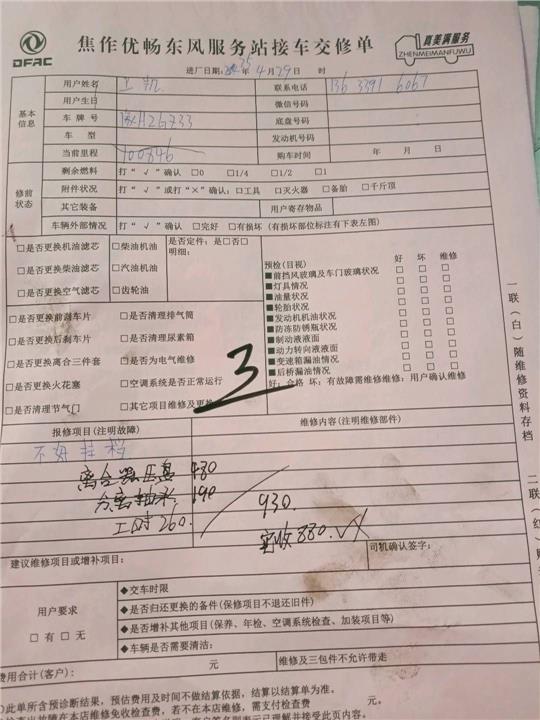 DFAC
焦作优畅东风服务站接车交修单
真美满服务
ZHENMEIMANFUWU
进厂日期: 年 4 月 29 日 时
基本信息
用户姓名 王凯 联系电话 136 3391 6067
用户生日 微信号码
车牌号 豫H2G733 底盘号码
车型 发动机号码
当前里程 100846 购车时间 年 月 日
修前状态
剩余燃料 打“√”确认 □0 □1/4 □1/2 □1
附件状况 打“√”或打“×”确认:□工具 □灭火器 □备胎 □千斤顶
其它装备 用户寄存物品
车辆外部情况 打“√”确认 □完好 □有损坏(有损坏部位标注有下表左图)
□是否更换机油滤芯 □柴油机油 是否定件:是□否□
明细:
□是否更换柴油滤芯 □汽油机油
□是否更换空气滤芯 □齿轮油
预检(目视) 好 坏 维修
■前挡风玻璃及车门玻璃状况 □ □ □
■灯具情况 □ □ □
■油量状况 □ □ □
■轮胎状况 □ □ □
■发动机机油状况 □ □ □
■防冻防锈瓶状况 □ □ □
■制动液液面 □ □ □
■动力转向液液面 □ □ □
■变速箱漏油情况 □ □ □
■后桥漏油情况 □ □ □
好:合格 坏:有故障需维修维修:用户确认维修
□是否更换前刹车片 □是否清理排气筒
□是否更换后刹车片 □是否清理尿素箱
□是否更换离合三件套 □是否为电气维修
□是否更换火花塞 □空调系统是否正常运行
□是否清理节气门 □其它项目维修及更换
3
报修项目(注明故障) 维修内容(注明维修部件)
不好挂档
离合器压盘 480
分离轴承 190
工时260.
930.
实收880.
司机确认签字:
建议维修项目或增补项目:
用户要求
□有 □无
◆交车时限
◆是否归还更换的备件(保修项目不退还旧件)
◆是否增补其他项目(保养、年检、空调系统检查、加装项目等)
◆车辆是否需要清洁:
费用合计(客户): 元 维修及三包件不允许带走
)此单所含预诊断结果,预估费用及时间不做结算依据,结算以结算单为准。
检查出故障在本店维修免收检查费,若不在本店维修,需支付检查费 元。
一联(白)随维修资料存档
二联(红)